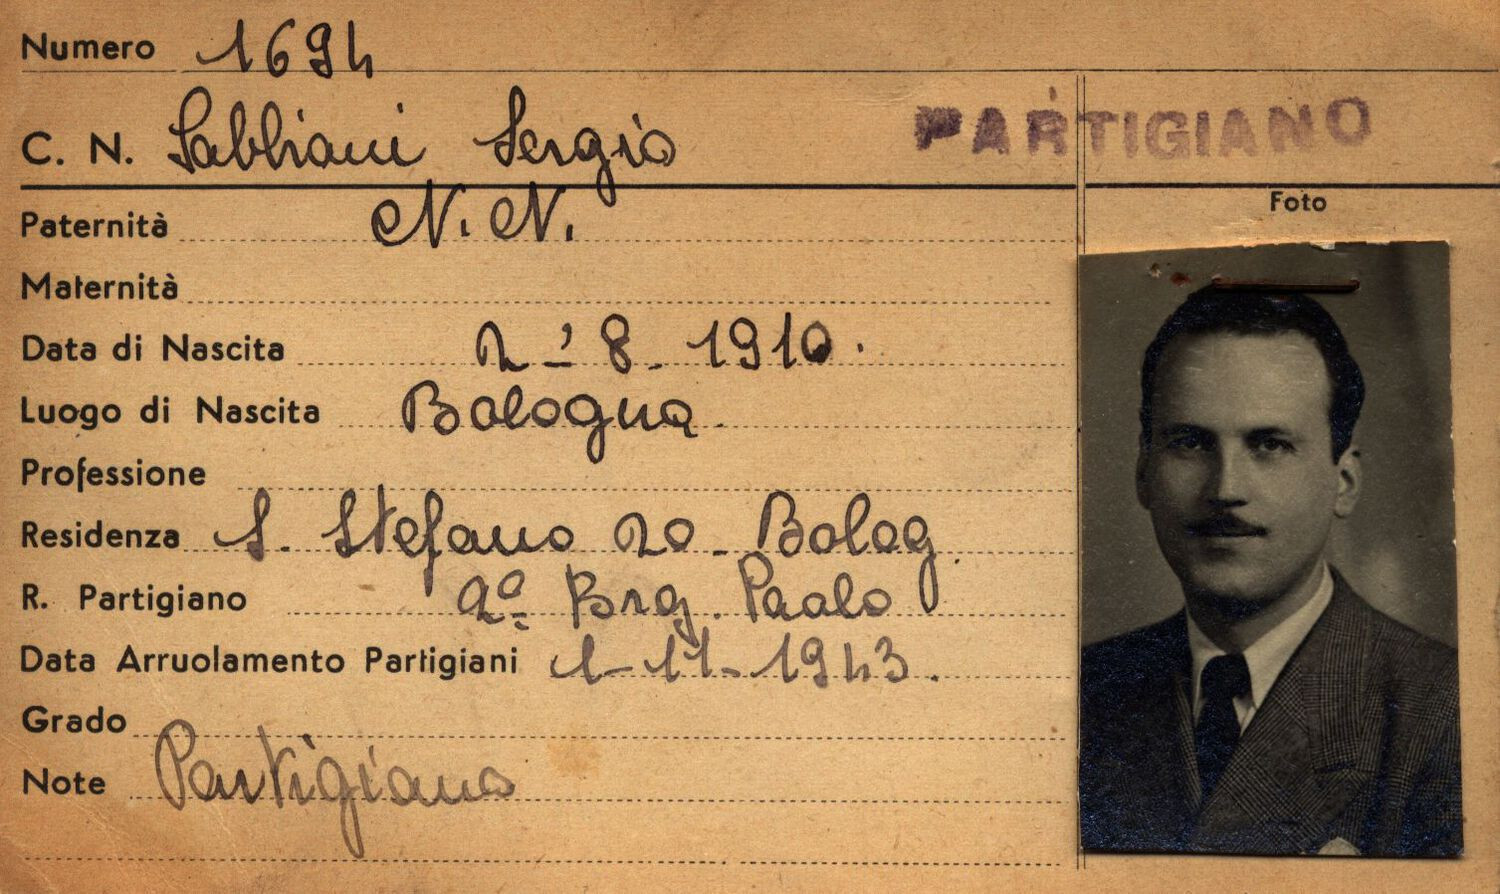 Numero 1694
C. N. Sabbiani Sergio
PARTIGIANO
Foto
Paternità N. N.
Maternità
Data di Nascita 2-8-1910.
Luogo di Nascita Bologna.
Professione
Residenza S. Stefano 20 - Bolog.
R. Partigiano 2ª Brg. Paolo
Data Arruolamento Partigiani 1-11-1943.
Grado
Note Partigiano